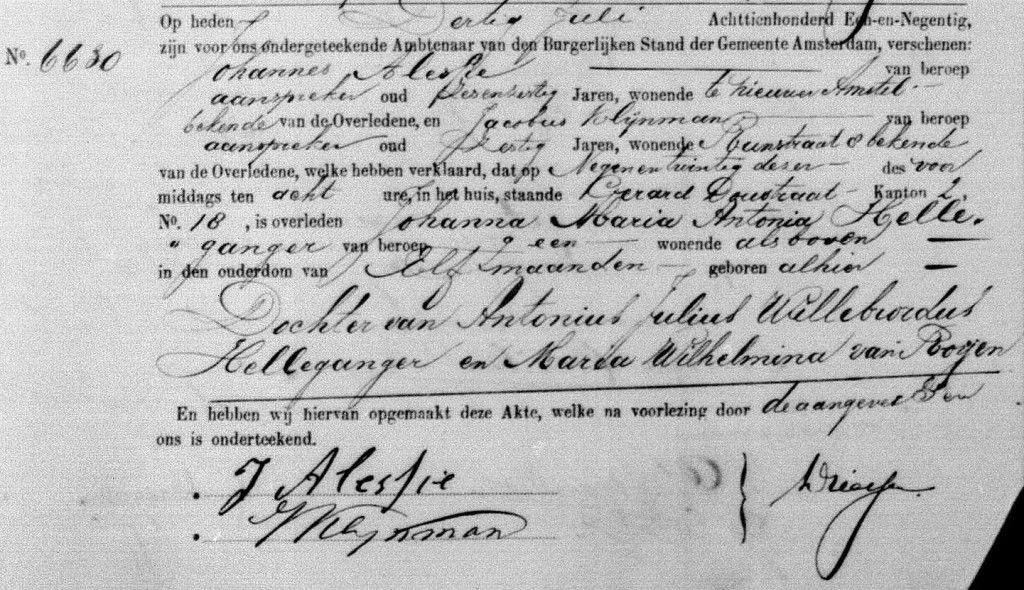 Op heden Dertig Juli Achttienhonderd Een-en-Negentig,
No. 6630 zijn voor ons ondergeteekende Ambtenaar van den Burgerlijken Stand der Gemeente Amsterdam, verschenen:
Johannes Alessie van beroep
aanspreker oud zesenveertig Jaren, wonende te Nieuwer Amstel
bekende van de Overledene, en Jacobus Klijnman van beroep
aanspreker oud Jaren, wonende Runstraat 8 bekende
van de Overledene, welke hebben verklaard, dat op Negenentwintig dezer des voor
middags ten acht ure, in het huis, staande Gerard Doustraat Kanton 2,
No. 18, is overleden Johanna Maria Antonia Helle-
" ganger van beroep geen wonende als boven
in den ouderdom van Elf maanden geboren alhier
Dochter van Antonius Julius Willebrordus
Helleganger en Maria Wilhelmina van Rooijen
En hebben wij hiervan opgemaakt deze Akte, welke na voorlezing door de aangevers en
ons is onderteekend.
J Alessie
JKlijnman